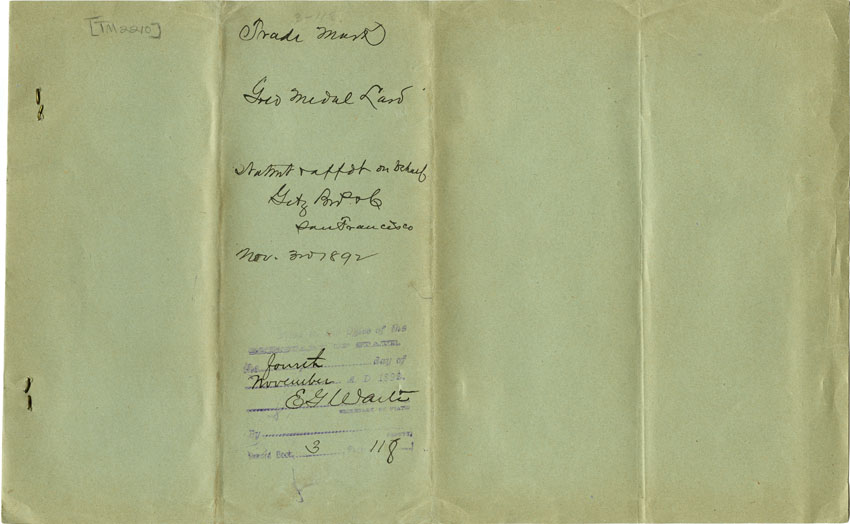 [TM2240]
Trade Mark
Gold Medal Lard
Statmt & affdt on behalf
Getz Bros & Co
San Francisco
Nov. 3rd 1892
Office of the
fourth day of
November A D 1892.
E G Waite
SECRETARY OF STATE
By
Record Book 3 118